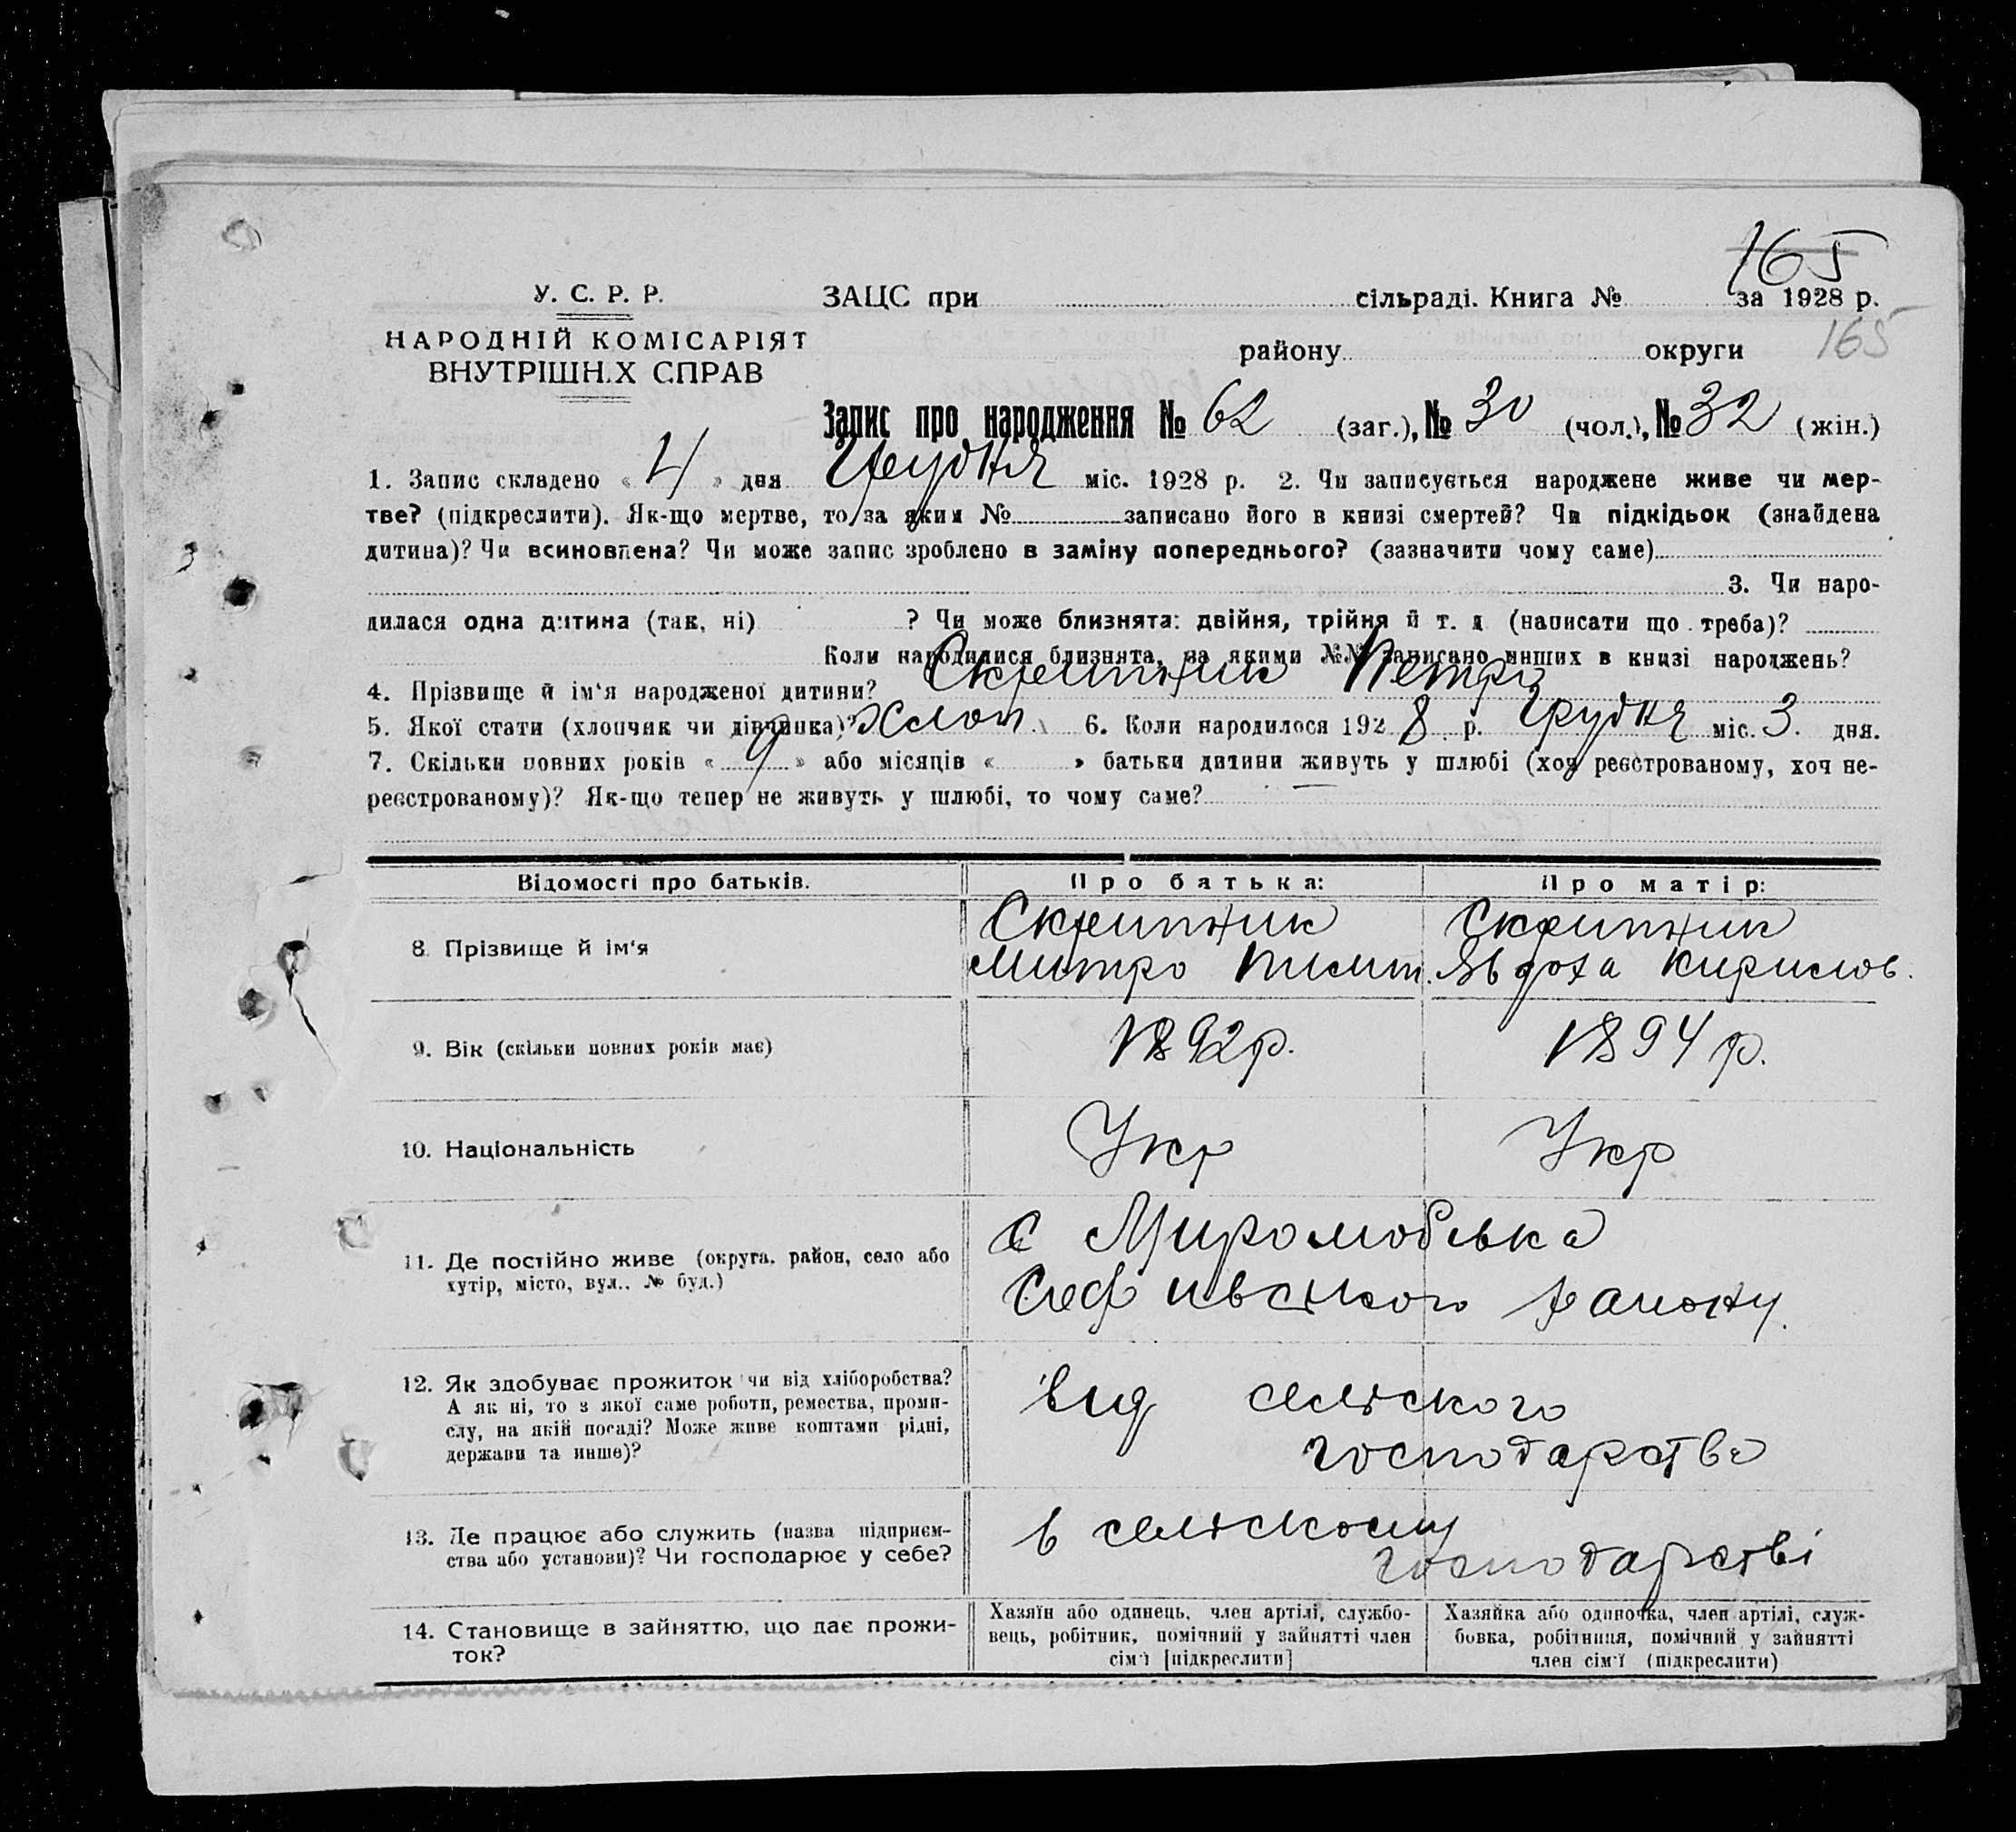 165
У. С. Р. Р.
ЗАЦС при сільраді. Книга № за 1928 р.
НАРОДНІЙ КОМІСАРІЯТ
ВНУТРІШН.Х СПРАВ
району округи 165
Запис про народження № 62 (заг.), № 30 (чол.), № 32 (жін.)
1. Запис складено « 4 » дня Грудня міс. 1928 р. 2. Чи записується народжене живе чи мер-
тве? (підкреслити). Як-що мертве, то за яким № записано його в книзі смертей? Чи підкідьок (знайдена
дитина)? Чи всиновлена? Чи може запис зроблено в заміну попереднього? (зазначити чому саме)
3. Чи наро-
дилася одна дитина (так, ні) ? Чи може близнята: двійня, трійня й т. д. (написати що треба)?
Коли народилися близнята, за якими №№ записано инших в книзі народжень?
4. Прізвище й ім'я народженої дитини? Скрипник Петро
5. Якої стати (хлопчик чи дівчинка)? Хлоп. 6. Коли народилося 1928 р. Грудня міс. 3. дня.
7. Скільки повних років « 9 » або місяців « » батьки дитини живуть у шлюбі (хоч реєстрованому, хоч не-
реєстрованому)? Як-що тепер не живуть у шлюбі, то чому саме?
Відомості про батьків. Про батька: Про матір:
8. Прізвище й ім'я
Скрипник
Митро Пилип.
Скрипник
Явдоха Кирилов.
9. Вік (скільки повних років має) 1892 р. 1894 р.
10. Національність Укр Укр
11. Де постійно живе (округа, район, село або
хутір, місто, вул., № буд.)
с Миролюбівка
району.
12. Як здобуває прожиток чи від хліборобства?
А як ні, то з якої саме роботи, ремества, проми-
слу, на якій посаді? Може живе коштами рідні,
держави та инше)?
від сельського
господарства
13. Де працює або служить (назва підприєм-
ства або установи)? Чи господарює у себе?
в сельському
господарстві
14. Становище в зайняттю, що дає прожи-
ток?
Хазяїн або одинець, член артілі, службо-
вець, робітник, помічний у зайнятті член
сім'ї [підкреслити]
Хазяйка або одиночка, член артілі, служ-
бовка, робітниця, помічний у зайнятті
член сім'ї (підкреслити)